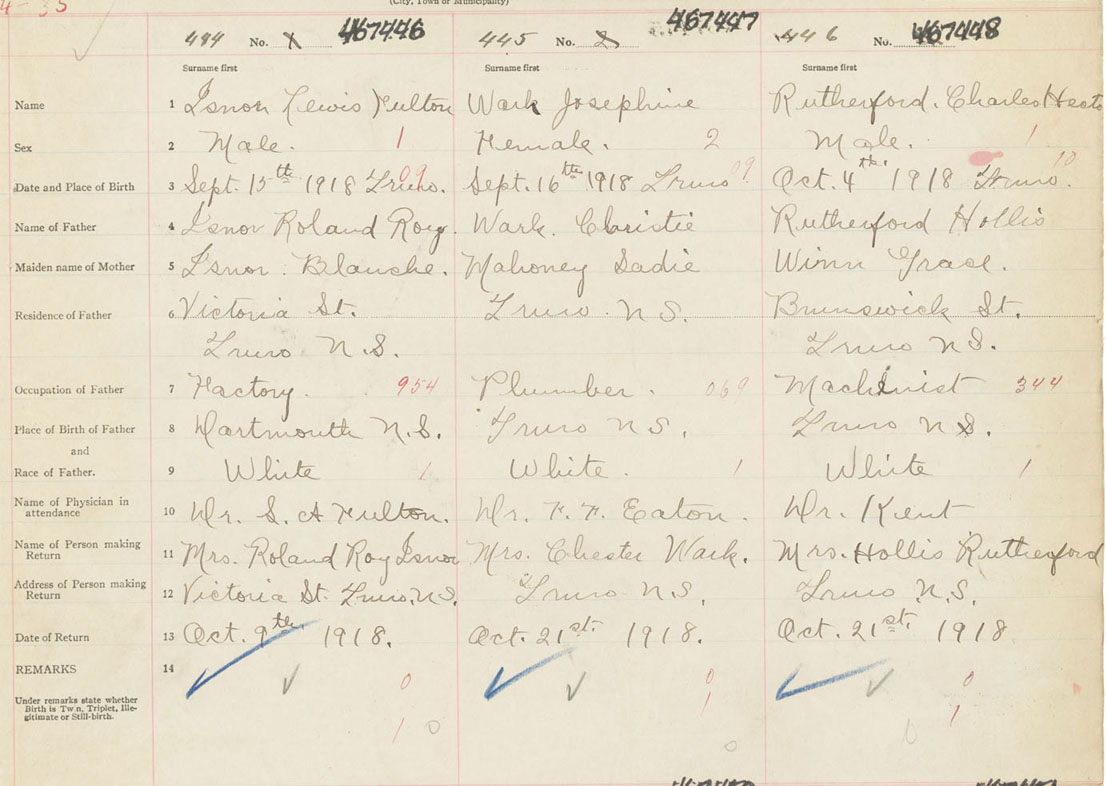 4-35
(City, Town or Municipality)
494 No. 1 467446 445 No. 2 467447 446 No. 467448
Surname first Surname first Surname first
Name 1 Isnor Lewis Fulton Wark Josephine Rutherford. Charles
Sex 2 Male. 1 Female. 2 Male. 1
Date and Place of Birth 3 Sept. 15th 1918 Truro. 09 Sept. 16th 1918 Truro 09 Oct. 4th. 1918 Truro. 10
Name of Father 4 Isnor Roland Roy. Wark. Christie Rutherford Hollis
Maiden name of Mother 5 Isnor. Blanche. Mahoney Sadie Winn Grace.
Residence of Father 6 Victoria St. Truro. N.S. Brunswick St.
Truro N.S. Truro N.S.
Occupation of Father 7 Factory. 954 Plumber. 069 Machinist 344
Place of Birth of Father 8 Dartmouth N.S. Truro N.S. Truro N.S.
and
Race of Father. 9 White 1 White. 1 White 1
Name of Physician in
attendance 10 Dr. S. A Fulton. Dr. F. F. Eaton. Dr. Kent
Name of Person making
Return 11 Mrs. Roland Roy Isnor Mrs. Chester Wark. Mrs. Hollis Rutherford
Address of Person making
Return 12 Victoria St. Truro, N.S. Truro N.S. Truro N.S.
Date of Return 13 Oct. 9th 1918. Oct. 21st. 1918. Oct. 21st. 1918
REMARKS 14 0 0 0
Under remarks state whether
Birth is Twin, Triplet, Ille-
gitimate or Still-birth. 1 0 1 0 1 0